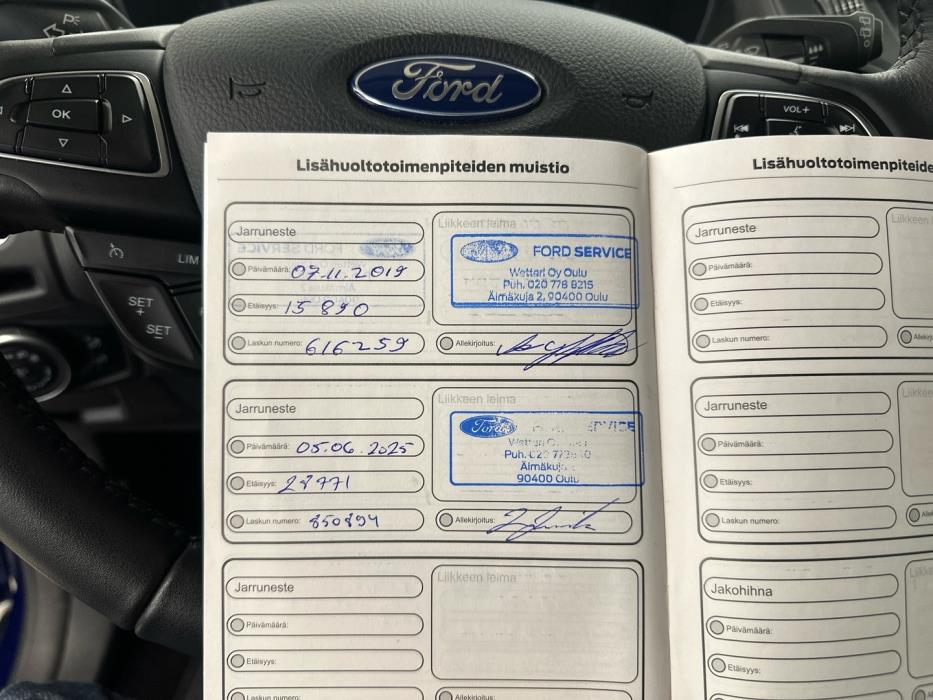 P
OK
VOL+
LIM
SET
+
SET
−
Ford
Lisähuoltotoimenpiteiden muistio
Jarruneste
Päivämäärä: 07.11.2019
Etäisyys: 15 890
Laskun numero: 616259
Liikkeen leima
Ford FORD SERVICE
Wetteri Oy Oulu
Puh. 020 778 8215
Äimäkuja 2, 90400 Oulu
Allekirjoitus:
Jarruneste
Päivämäärä: 05.06.2025
Etäisyys: 28771
Laskun numero: 850894
Liikkeen leima
Ford
Puh.
90400 Oulu
Allekirjoitus:
Jarruneste
Päivämäärä:
Etäisyys:
Laskun numero:
Liikkeen leima
Allekirjoitus:
Lisähuoltotoimenpiteide
Jarruneste
Päivämäärä:
Etäisyys:
Laskun numero:
Liikkeen
Jarruneste
Päivämäärä:
Etäisyys:
Laskun numero:
Jakohihna
Päivämäärä:
Etäisyys: